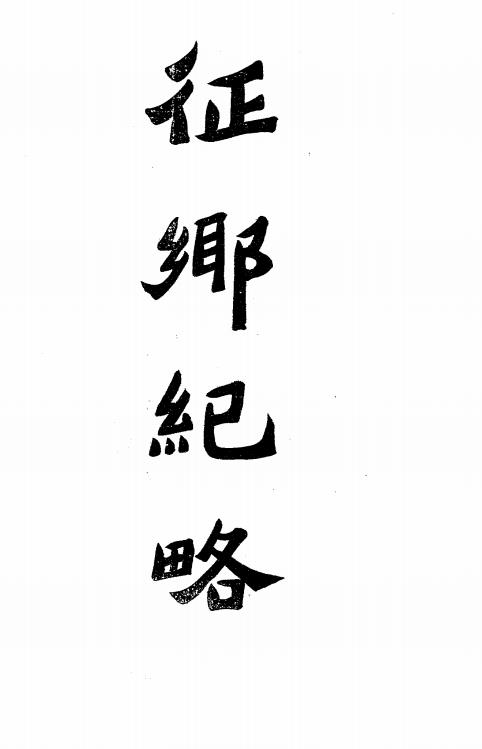 征鄉紀略